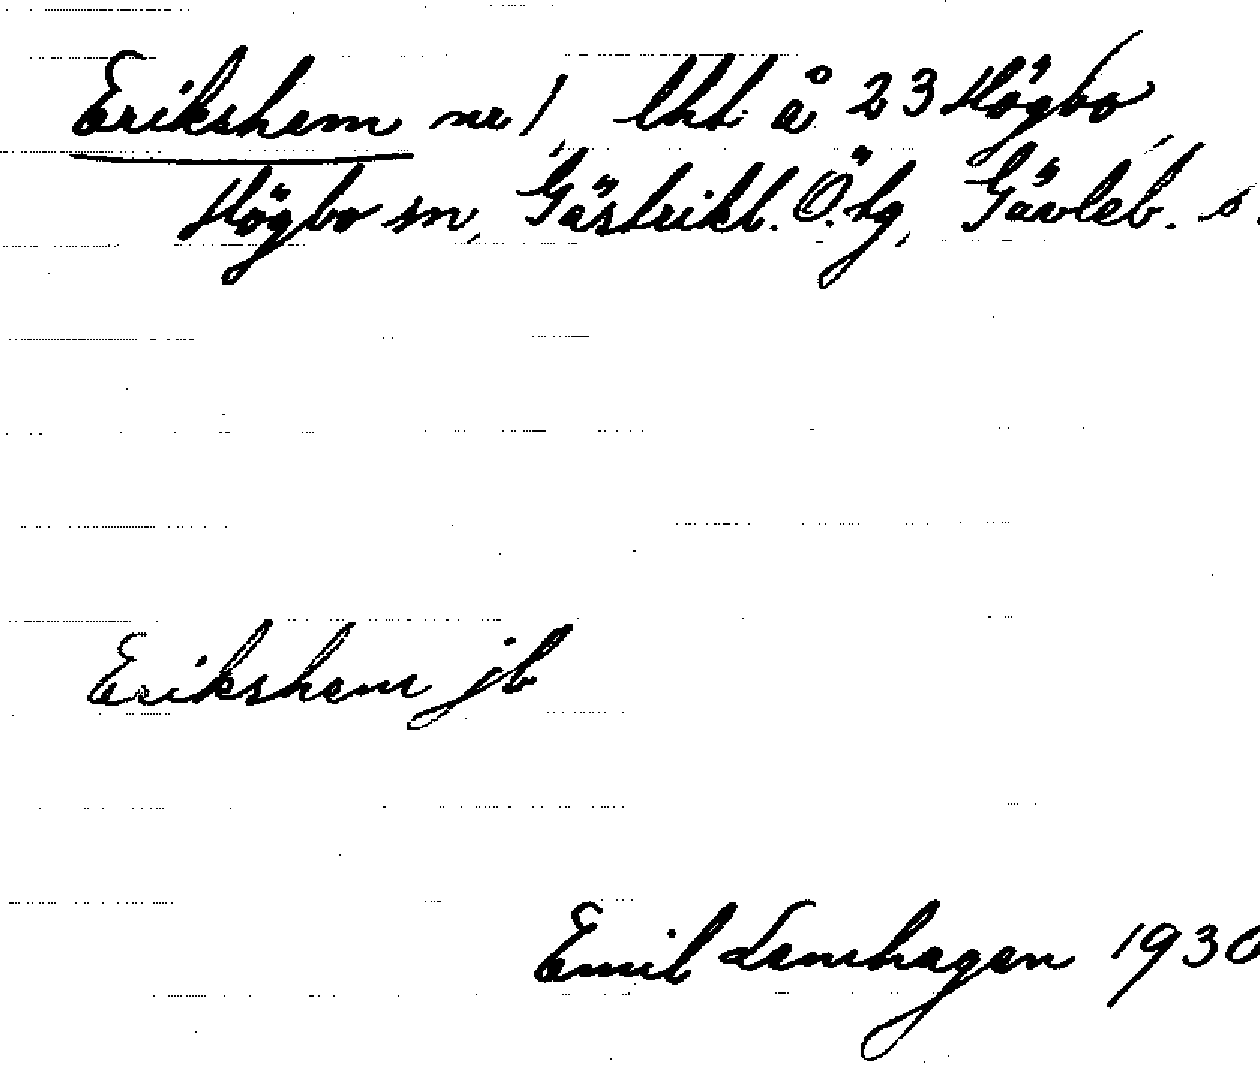 Erikshem nr 1, lht å 23 Högbo,
Högbo sn, Gästrikl. Ö. hg, Gävleb. s.
Erikshem jb
Emil Lenhagen 1930